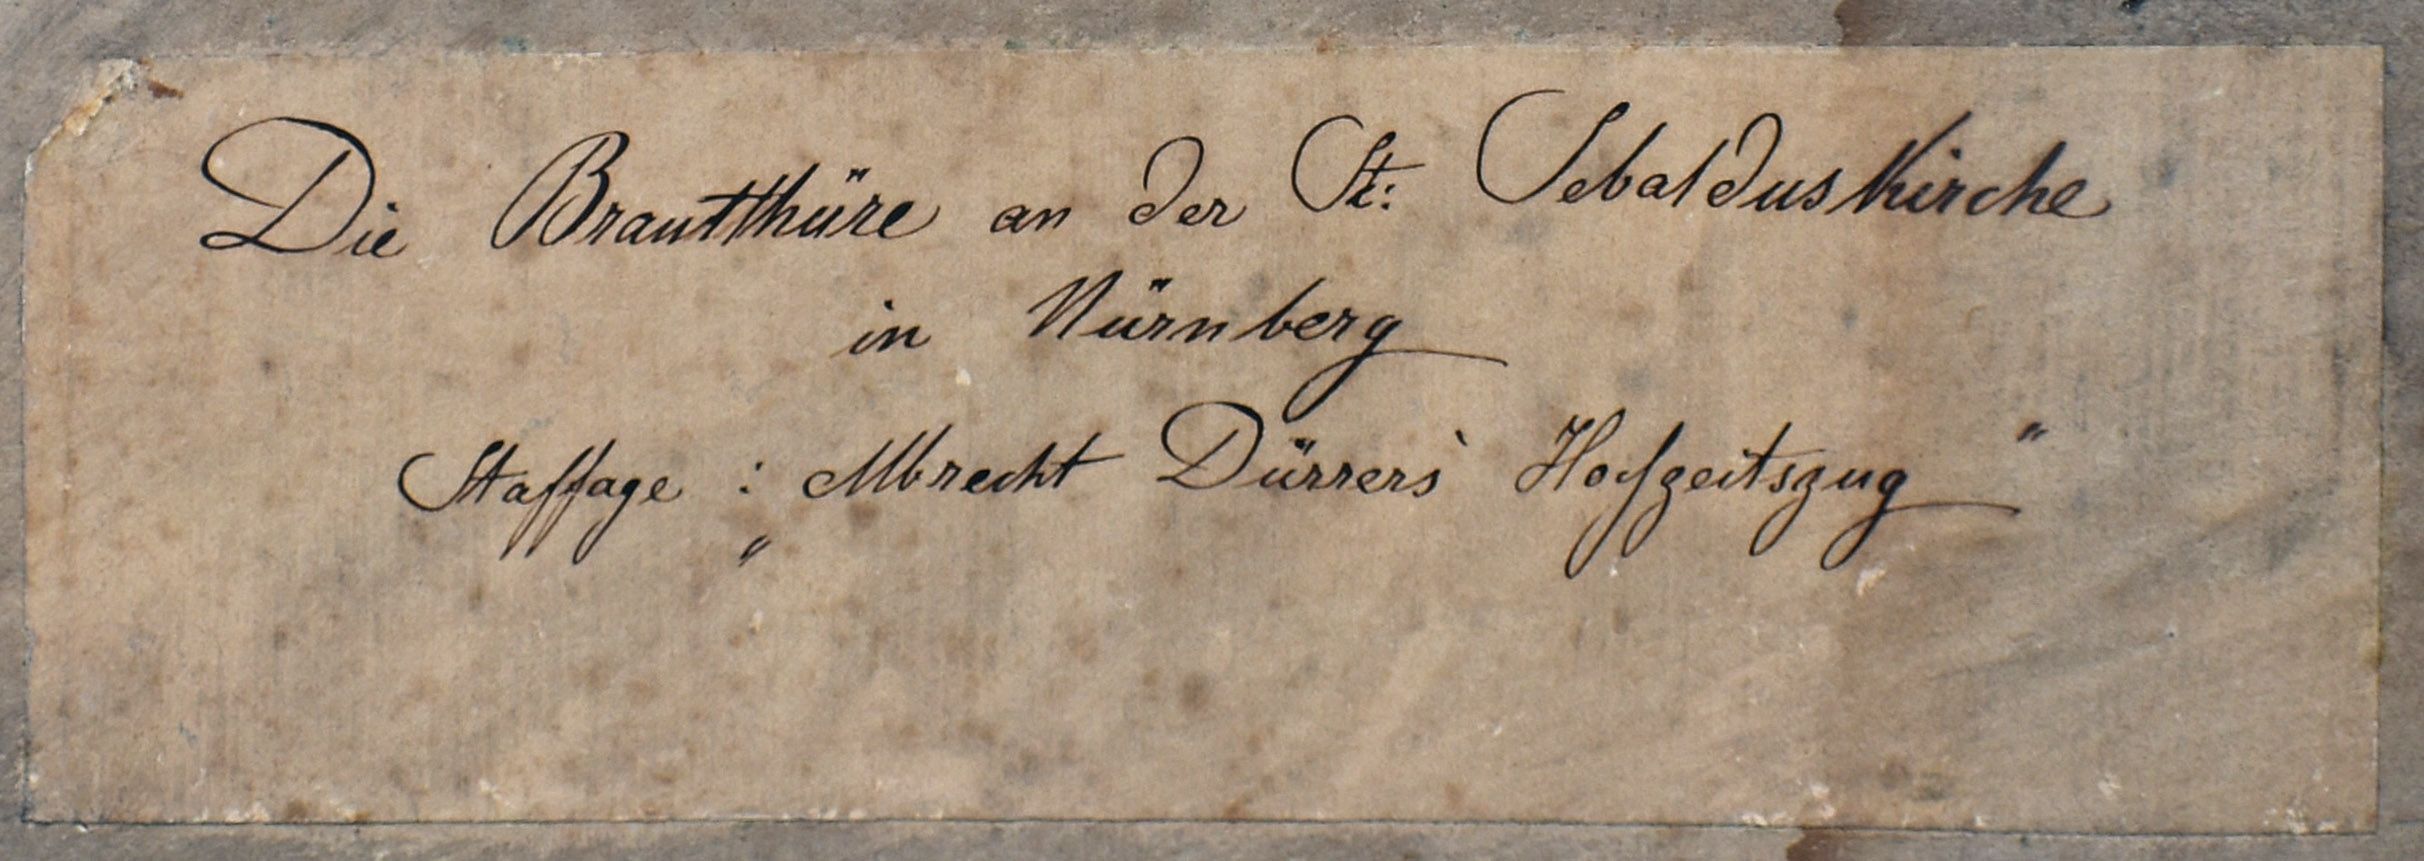 Die Brautthüre an der St: Sebalduskirche
in Nürnberg
Staffage : „Albrecht Dürrers` Hofzeitszug“